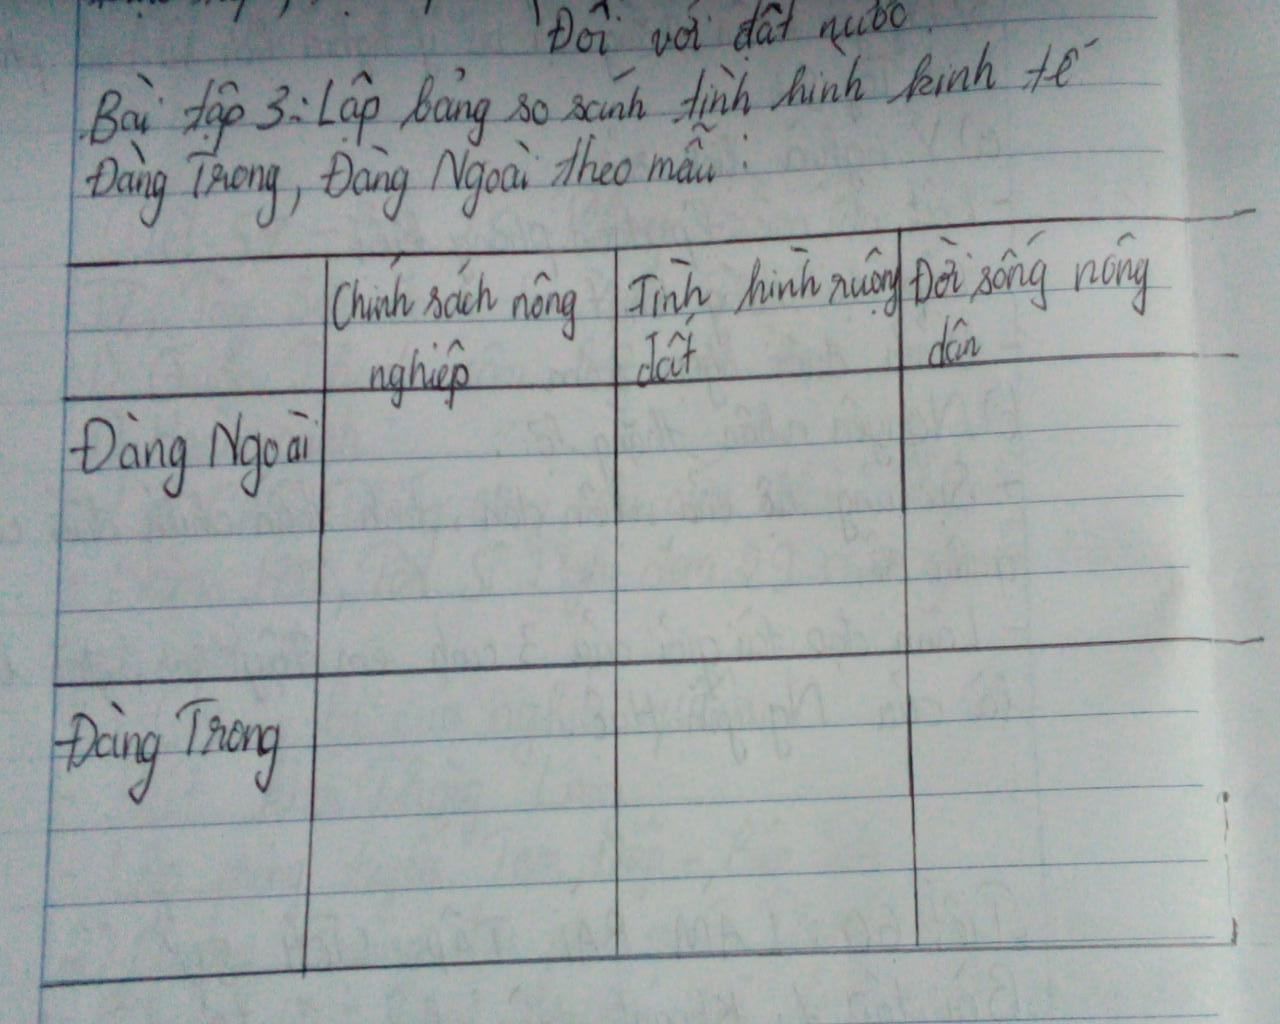 Đối với đất nước.
Bài tập 3: Lập bảng so sánh tình hình kinh tế
Đàng Trong, Đàng Ngoài theo mẫu:
Chính sách nông nghiệp
Tình hình ruộng đất
Đời sống nông dân
Đàng Ngoài
Đàng Trong